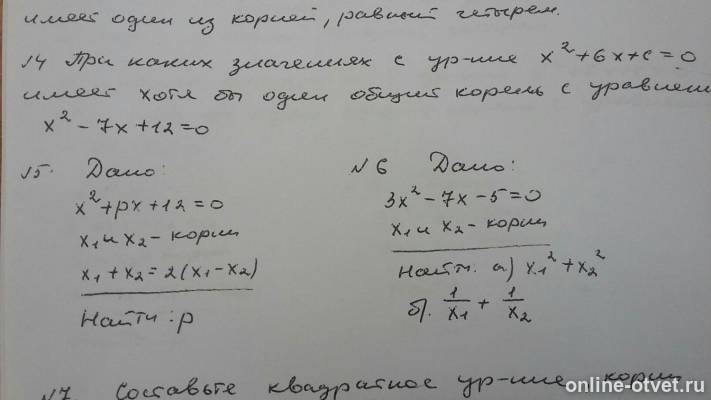 имеет один из корней, равный четырем.
№4 При каких значениях c ур-ние x² + 6x + c = 0
имеет хотя бы один общий корень с уравнени
x² - 7x + 12 = 0
№5. Дано:
x² + px + 12 = 0
x₁ и x₂ - корни
x₁ + x₂ = 2(x₁ - x₂)
Найти: p
№6 Дано:
3x² - 7x - 5 = 0
x₁ и x₂ - корни
Найти: а) x₁² + x₂²
б). 1/x₁ + 1/x₂
№7 Составьте квадратное ур-ние, корни
online-otvet.ru